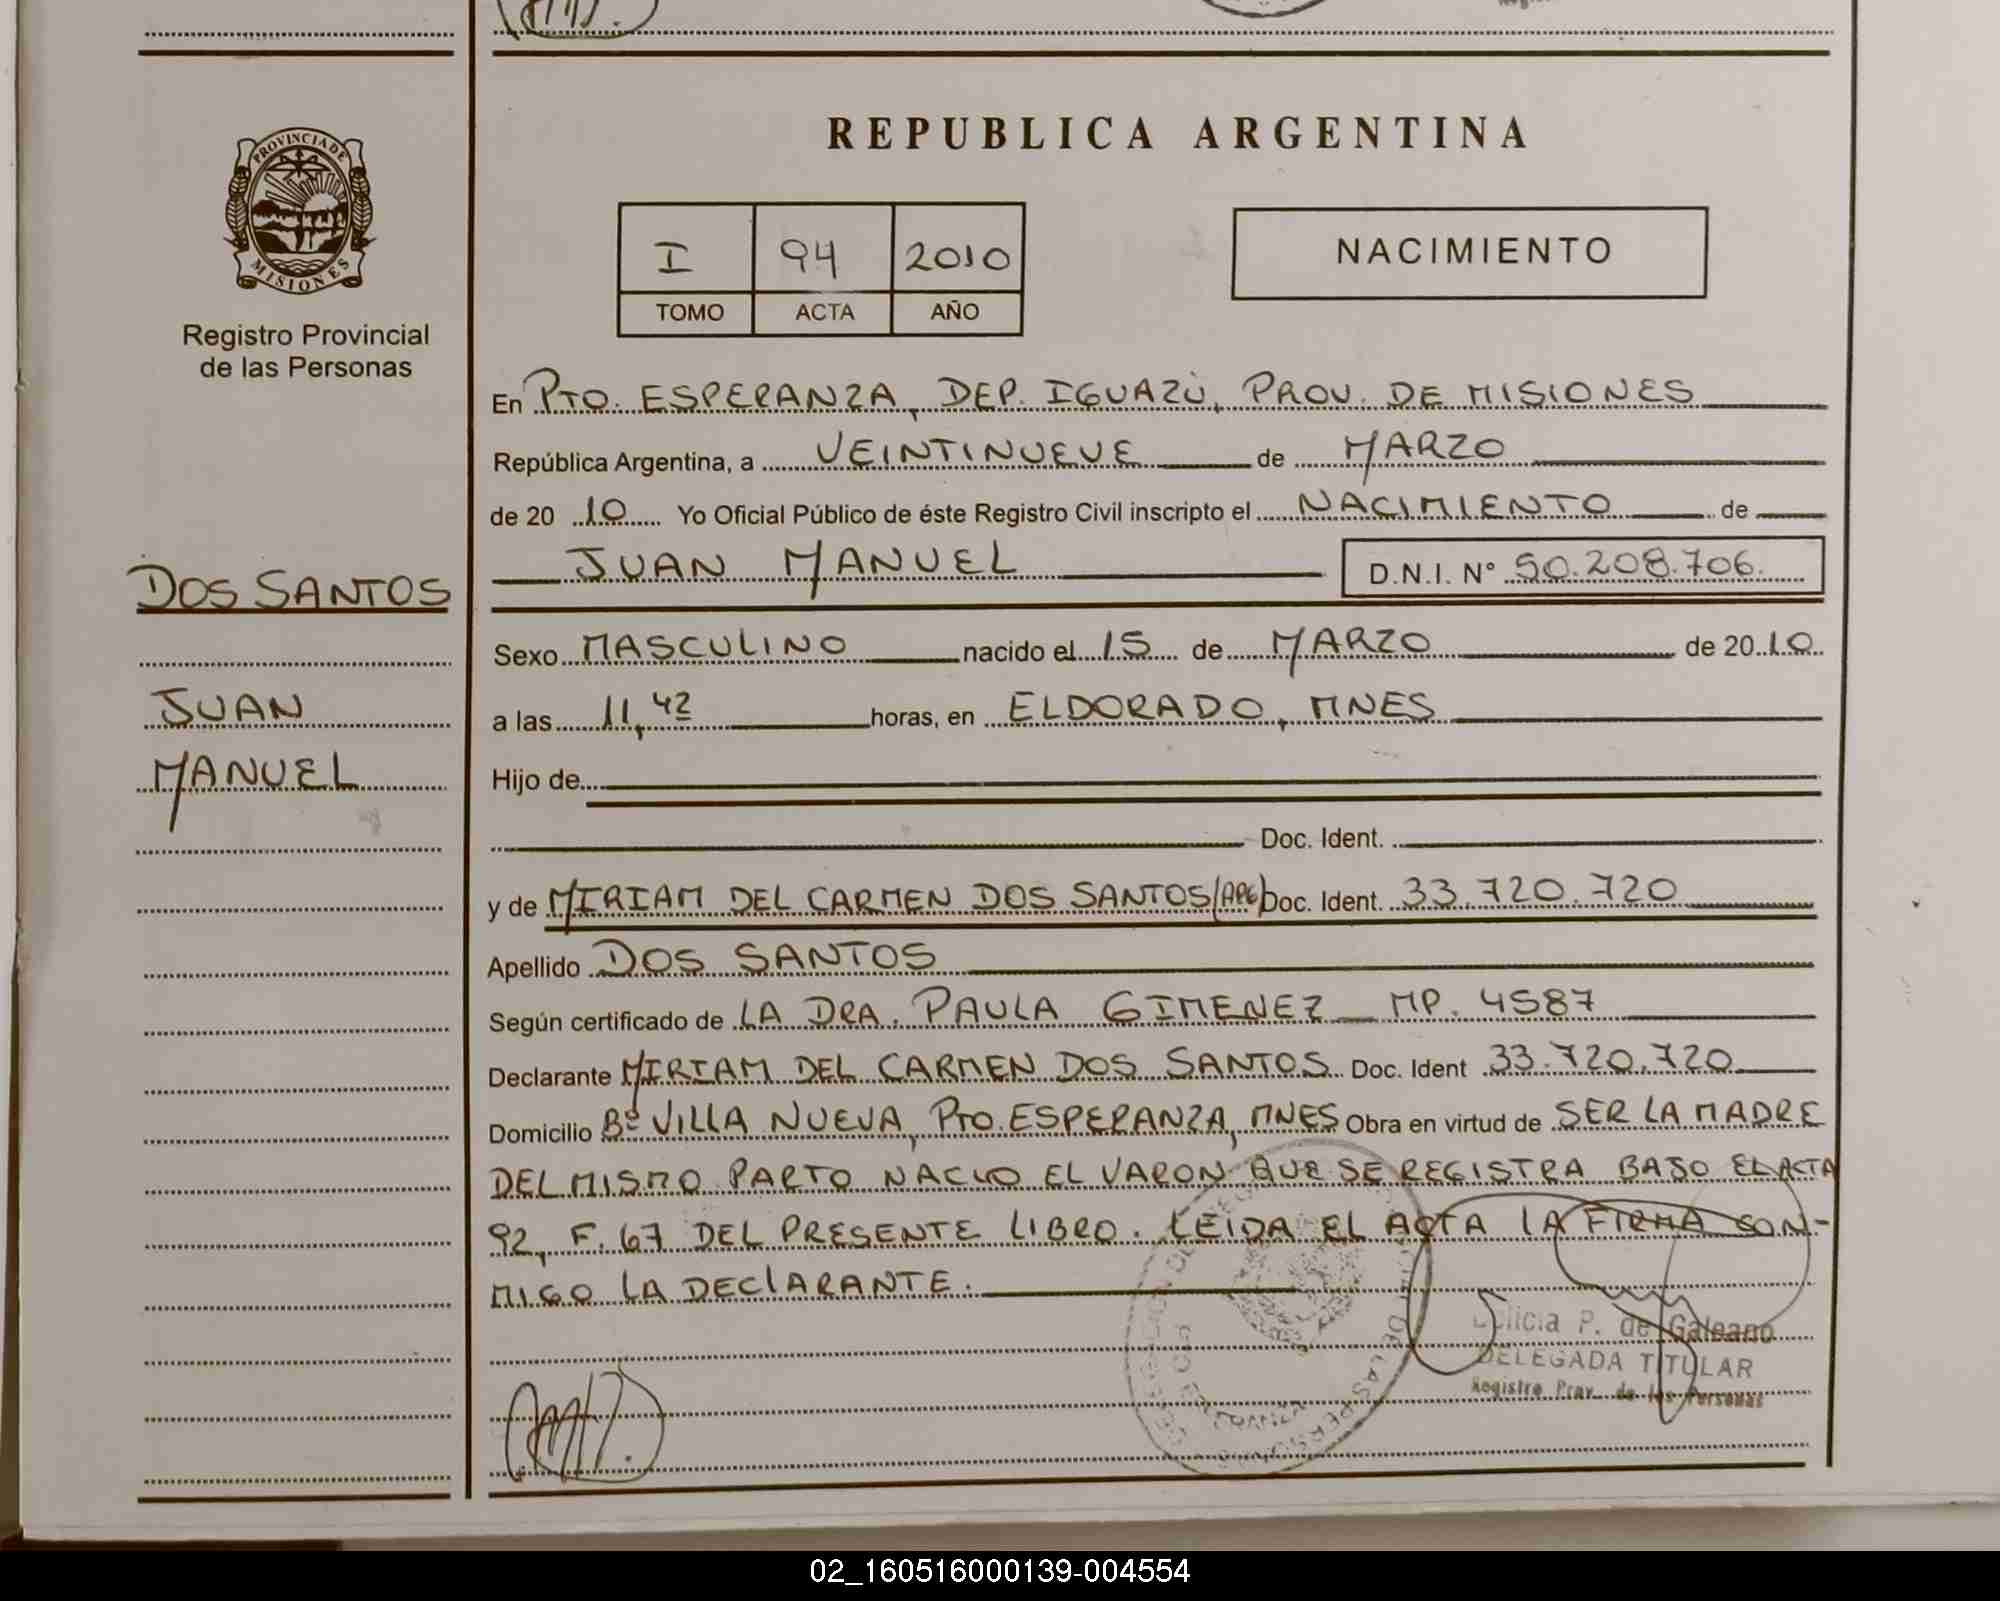 REPUBLICA ARGENTINA
PROVINCIA DE
MISIONES
Registro Provincial
de las Personas
I 94 2010
TOMO ACTA AÑO
NACIMIENTO
En PTO. ESPERANZA, DEP. IGUAZÚ, PROV. DE MISIONES
República Argentina, a VEINTINUEVE de MARZO
de 20 10 Yo Oficial Público de éste Registro Civil inscripto el NACIMIENTO de
JUAN MANUEL D.N.I. N° 50.208.706.
DOS SANTOS
JUAN
MANUEL
Sexo MASCULINO nacido el 15 de MARZO de 20 10
a las 11,42 horas, en ELDORADO, MNES
Hijo de
Doc. Ident.
y de MIRIAM DEL CARMEN DOS SANTOS (ARG) Doc. Ident. 33.720.720
Apellido DOS SANTOS
Según certificado de LA DRA. PAULA GIMENEZ MP. 4587
Declarante MIRIAM DEL CARMEN DOS SANTOS Doc. Ident 33.720.720
Domicilio Bº VILLA NUEVA, PTO. ESPERANZA, MNES Obra en virtud de SER LA MADRE
DEL MISMO PARTO NACIO EL VARON QUE SE REGISTRA BAJO EL ACTA
92, F. 67 DEL PRESENTE LIBRO. LEIDA EL ACTA LA FIRMA CON-
MIGO LA DECLARANTE.
P. de Galeano
DELEGADA TITULAR
Registro Prov. de las Personas
02_160516000139-004554